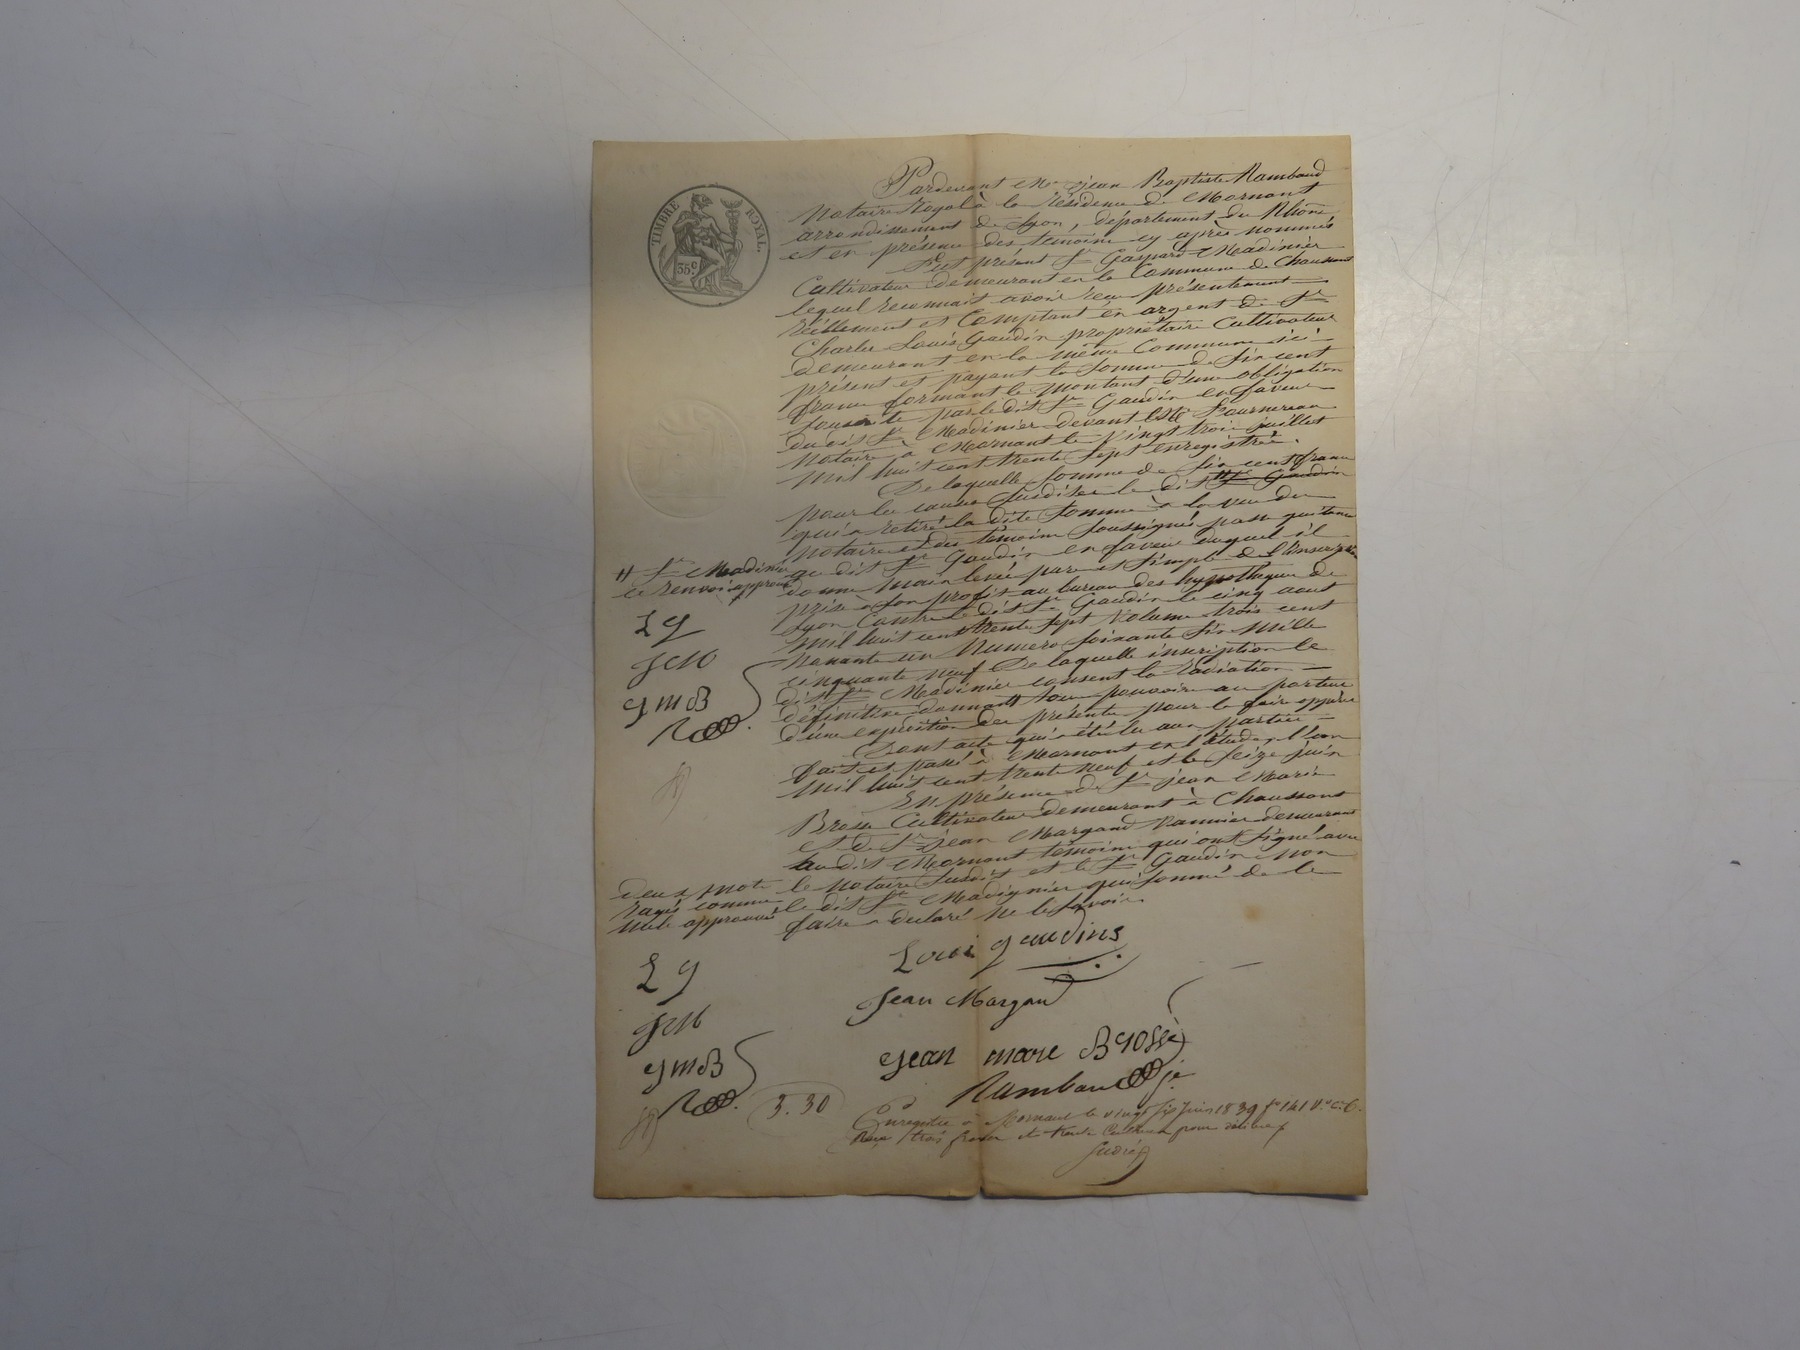 TIMBRE ROYAL.
35c
Pardevant Me jean Baptiste Rambaud
Notaire Royal à la résidence de Mornant
arrondissement de Lyon, département du Rhône
et en présence des temoins cy après nommés
Fut présent Sr Gaspard Madinier
Cultivateur demeurant en la Commune de Chaussant
lequel reconnait avoir reçu présentement
réellement et Comptant en argent de Sr
Charles Louis Gaudin propriétaire Cultivateur
demeurant en la même Commune ici
présent et payant la Somme de Six cent
francs formant le montant d'une obligation
Souscrite par le dit Sr Gaudin en faveur
du dit Sr Madinier devant Me Fournereau
Notaire à Mornant le Vingt trois juillet
mil huit cent trente Sept enregistrée.
De laquelle Somme de Six cent francs
pour les causes Susdites le dit # Sr Gaudin
qui a retiré la dite Somme à la vue du
Notaire et des témoins Soussignés passe quittance
au dit Sr Gaudin en faveur duquel il
# Sr Madinier
ce renvoi approuvé
donne main levée pure et Simple de l'Inscription
prise à Son profit au bureau des hypothèques de
Lyon Contre le dit Sr Gaudin le cinq aout
mil huit cent trente Sept Volume trois cent
Nonante un Numero Soixante Six mille
cinquante neuf De laquelle inscription le
dit Sr Madinier consent la radiation
définitive donnant tout pouvoir au porteur
d'une expédition des présentes pour la faire opérer
LG
JM
JMB
R
Dont acte qui a été lu aux parties
fait et passé à Mornant en l'étude, l'an
mil huit cent trente neuf et le Seize juin
En présence de Sr jean Marie
Brosse Cultivateur demeurant à Chaussant
et de Sr jean Margand Vannier demeurant
audit Mornant témoins qui ont Signé avec
le Notaire Susdit et le Sr Gaudin Non
le dit Sr Madignier qui Sommé de le
faire a declaré Ne le Savoir.
deux mots
rayés comme
nuls approuvé
LG
JM
JMB
R
Loui gaudins
Jean Margand
Jean marie Brosse
Rambaud
3.30
Enregistré à Mornant le vingt Six Juin 1839 fo 141 Vo c. 6.
Reçu trois francs et trente Centimes pour décime